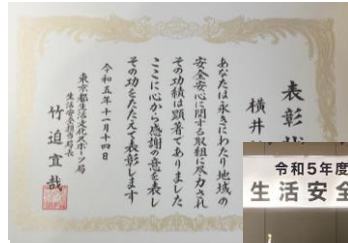 表彰状
横井
あなたは永きにわたり地域の
安全安心に関する取組に尽力され
その功績は顕著でありました
ここに心から感謝の意を表し
その功をたたえて表彰します
令和五年十一月十四日
東京都生活文化スポーツ局
生活安全担当局長
竹迫宜哉
令和5年度
生活安全